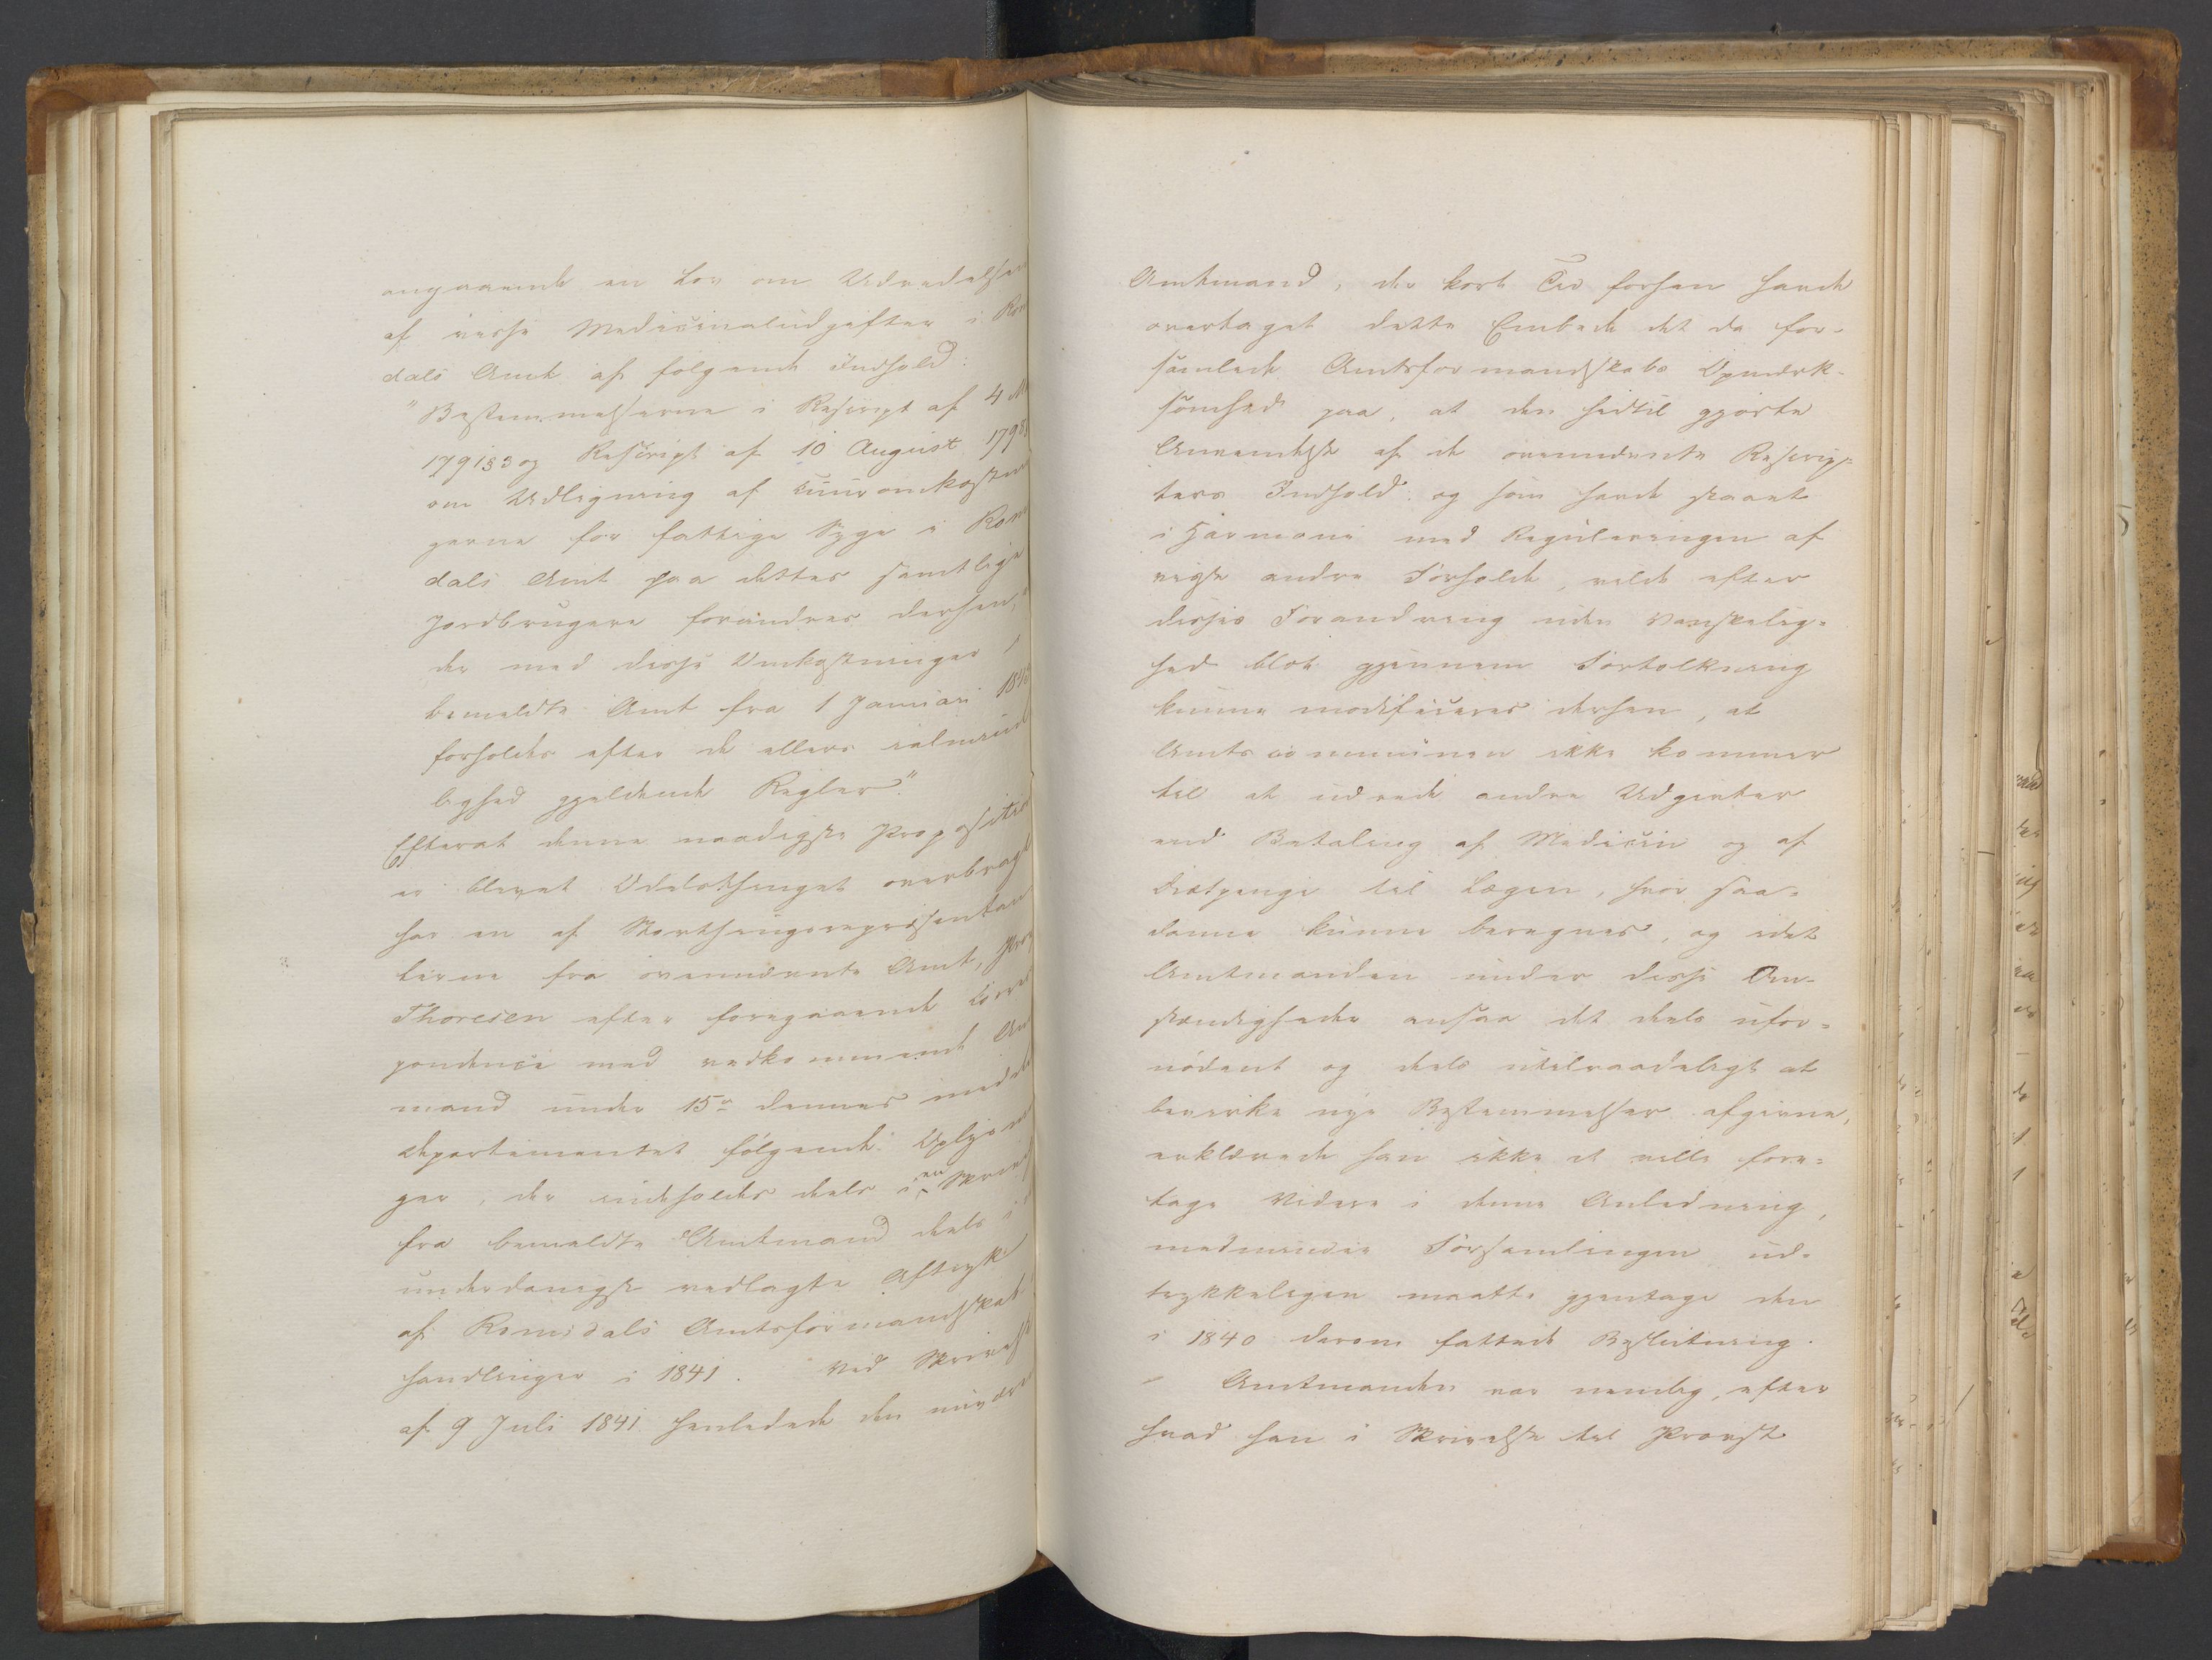 angaaende en Lov om Udredelsen
af visse Medicinaludgifter i Rom
dals Amt af følgende Indhold:
"Bestemmelserne i Rescript af 4
1791 § 3 og Rescript af 10 August 179
om Udligning af Cuuromkostnin
gerne for fattige Syge i Rom
dals Amt paa dettes samtlige
Jordbrugere forandres derhen,
der med disse Omkostninger i
bemeldte Amt fra 1 Januari 184
forholdes efter de ellers i almind
lighed gjeldende Regler".
Efterat denne naadigste Proposition
er blevet Odelsthinget overbragt
har en af Storthingsrepræsentan
terne fra ovennævnte Amt,
Thoresen efter foregaaende Corres
pondence med vedkommende Amt
mand under 15de dennes meddeelt
Departementet følgende Oplysnin
ger, der indeholdes deels i en Skrivelse
fra bemeldte Amtmand deels i
underdanigst vedlagte Aftryk
af Romsdals Amtsformandskabs
handlinger i 1841. Ved Skrivelse
af 9 Juli 1841 henledede den nuværen
Amtmand, der kort Tid forhen havde
overtaget dette Embede det da for-
samlede Amtsformandskabs Opmærk-
somhed paa, at den hidtil gjorte
Anvendelse af de ovennævnte Rescrip-
ters Indhold og som havde staaet
i Harmoni med Reguleringen af
visse andre Forholde, vilde efter
disses Forandring uden Vanskelig-
hed blot gjennem Fortolkning
kunne modificeres derhen, at
Amtscommunen ikke kommer
til at udrede andre Udgivter
end Betaling af Medicin og af
Diætpenge til Lægen, hvor saa-
danne kunne beregnes, og idet
Amtmanden under disse Om-
stændigheder ansaa det deels ufor-
nødent og deels utilraadeligt at
bevirke nye Bestemmelser afgivne,
erklærede han ikke at ville fore-
tage Videre i denne Anledning,
medmindre Forsamlingen ud-
trykkeligen maatte gjentage den
i 1840 derom fattede Beslutning.
Amtmanden var nemlig, efter
hvad han i Skrivelse til Provst